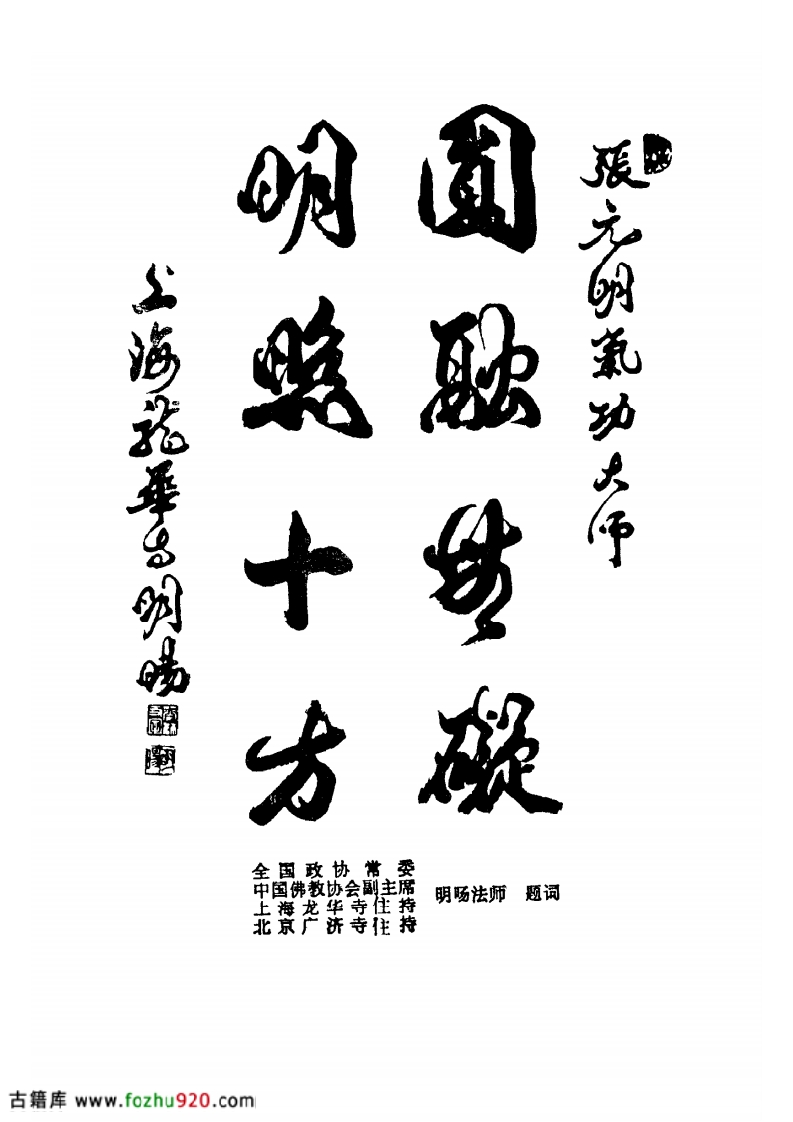 張元明氣功大师
圓融無礙
明照十方
上海龍華寺明暘
全国政协常委
中国佛教协会副主席
上海龙华寺住持
北京广济寺住持
明旸法师 题词
古籍库 www.fozhu920.com